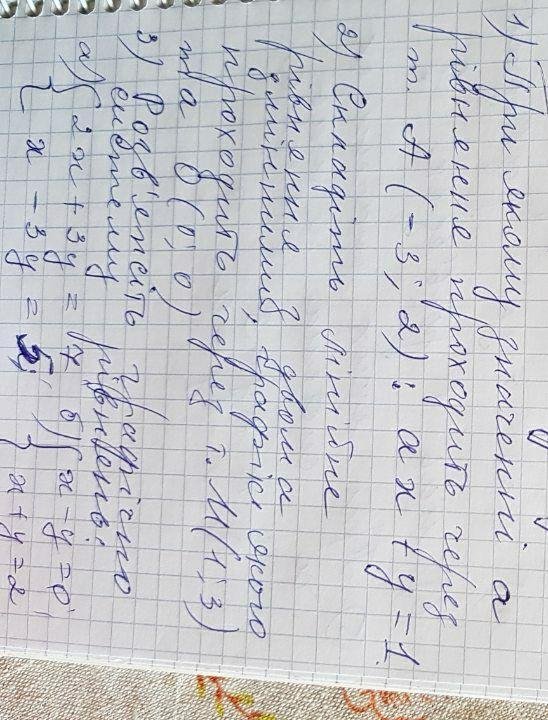 1) При якому значенні а
рівняння проходить через
т. А (-3; 2): ax + y = 1
2) Складіть лінійне
рівняння з двома
змінними, графік якого
проходить через т. М(1; 3)
та В(0; 0)
3) Розв'яжіть графічно
систему рівнянь:
а) { 2x + 3y = 7 б) { x - y = 0;
x - 3y = x + y = 2